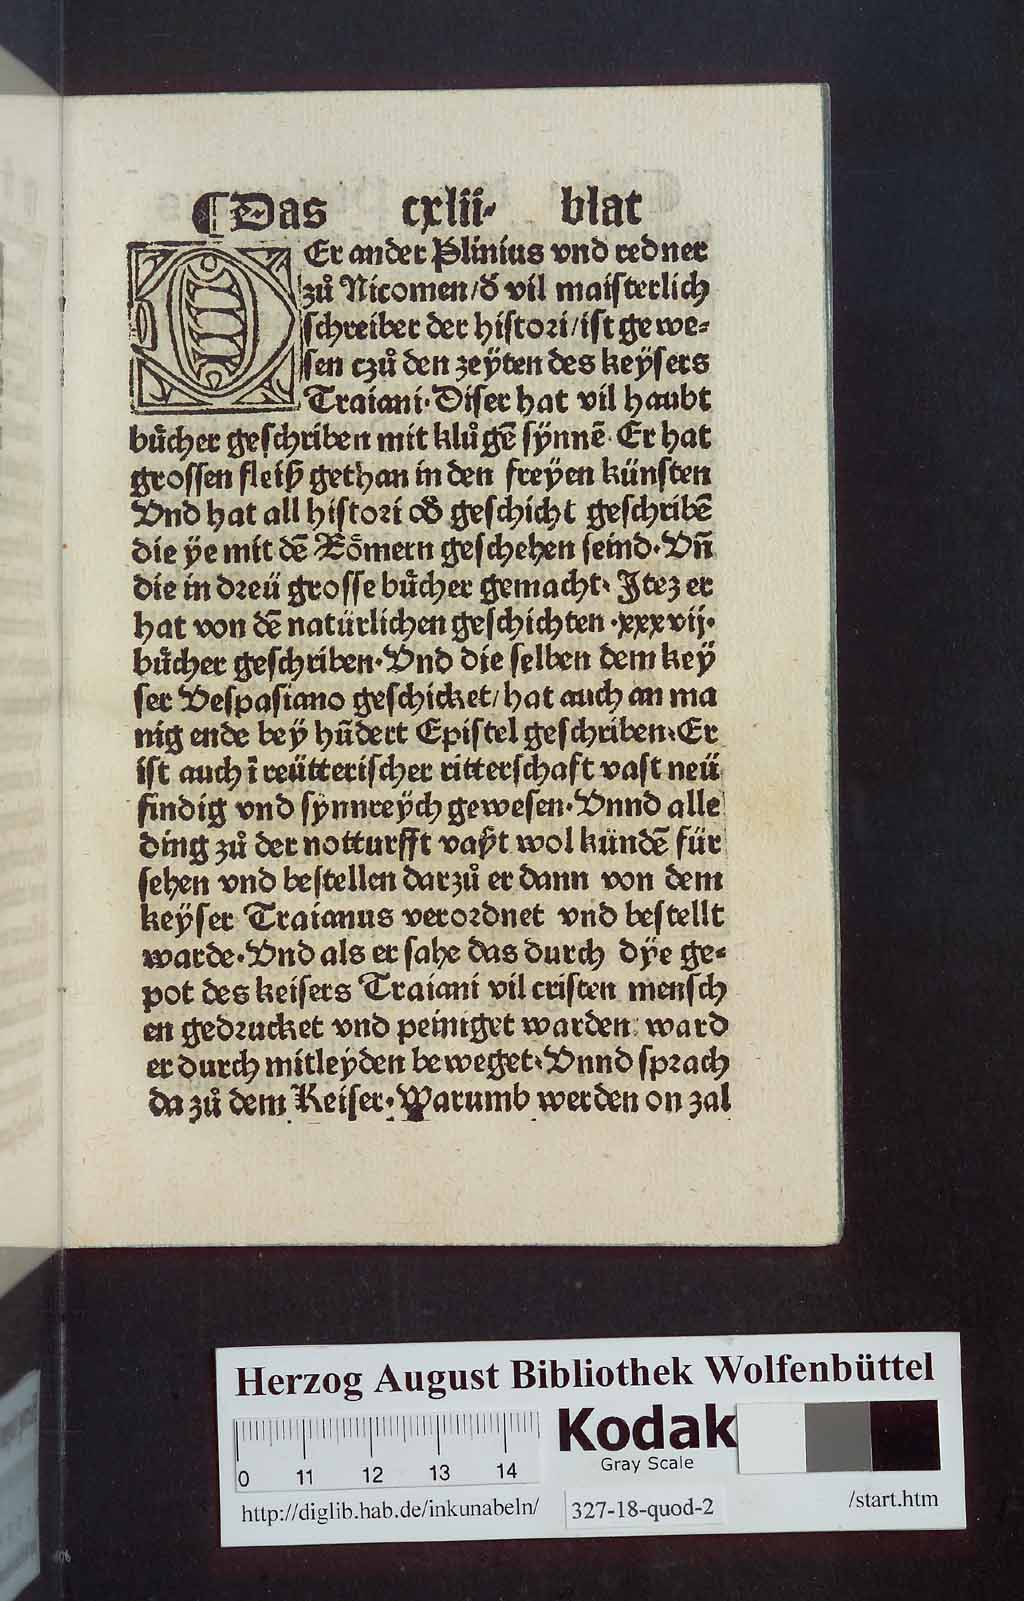 ¶ Das cxlii· blat
DEr ander Plinius vnd redner
zuͦ Nicomen/ď vil maiſterlich
ſchreiber der hiſtoꝛi/iſt gewe⸗
ſen czuͦ den zeÿten des keÿſers
Traiani· Diſer hat vil haubt
buͤcher geſchriben mit kluͦgē ſÿnnē· Er hat
groſſen fleiß gethan in den freÿen künſten
Vnd hat all hiſtoꝛi oď geſchicht geſchribē
die ÿe mit dē Roͤmern geſchehen ſeind· Vn̄
die in dꝛeü groſſe buͤcher gemacht· Itez er
hat von dē natürlichen geſchichten ·xxxvij·
buͤcher geſchriben· Vnd die ſelben dem keÿ
ſer Veſpaſiano geſchicket/hat auch an ma
nig ende beÿ hūdert Epiſtel geſchriben· Er
iſt auch ī reütteriſcher ritterſchaft vaſt neü
findig vnd ſÿnnreÿch geweſen· Vnnd alle
ding zuͦ der notturfft vaßt wol kündē für
ſehen vnd beſtellen darzuͦ er dann von dem
keÿſer Traianus veroꝛdnet vnd beſtellt
warde· Vnd als er ſahe das durch dÿe ge⸗
pot des keiſers Traiani vil criſten menſch
en gedꝛucket vnd peiniget warden: ward
er durch mitleÿden beweget· Vnnd ſpꝛach
da zuͦ dem Keiſer· Warumb werden on zal
Herzog August Bibliothek Wolfenbüttel
Kodak
Gray Scale
0 11 12 13 14
http://diglib.hab.de/inkunabeln/ 327-18-quod-2 /start.htm